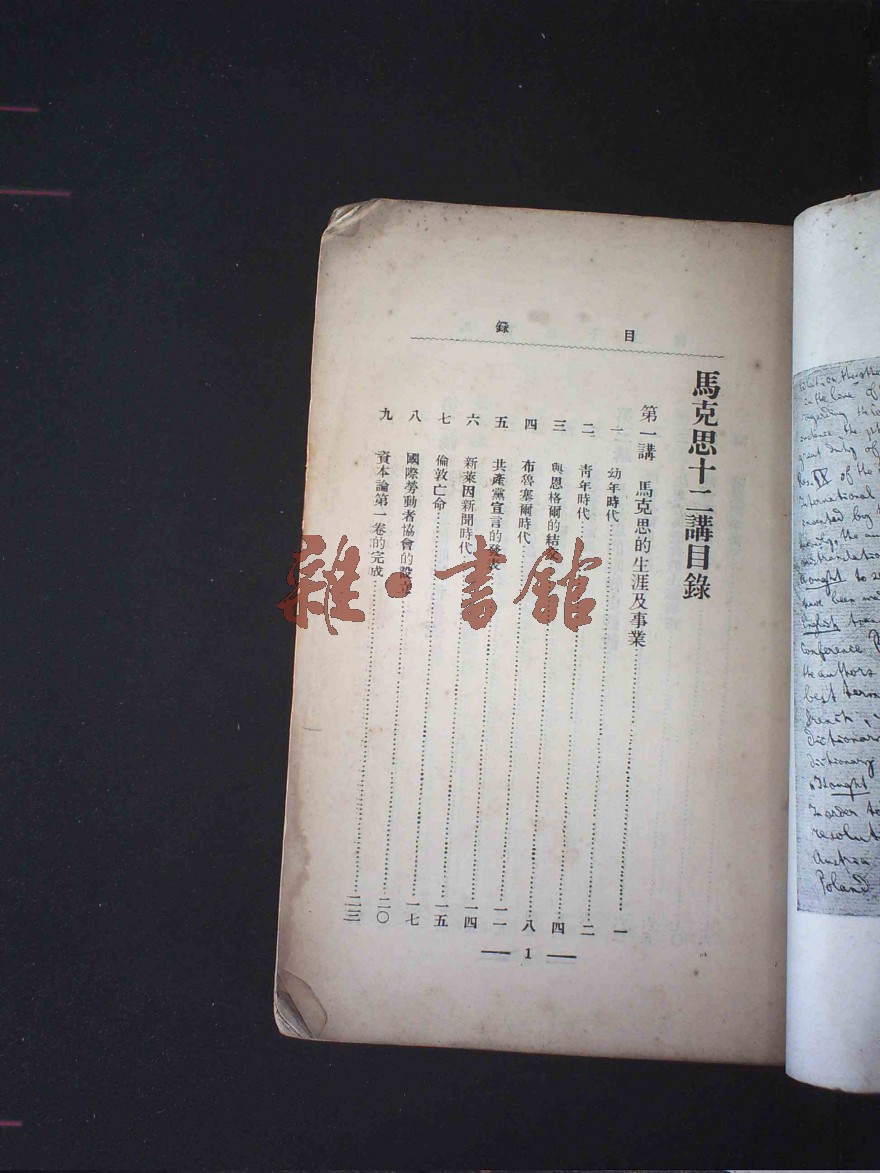 目錄
馬克思十二講目錄
第一講 馬克思的生涯及事業……一
一 幼年時代……二
二 青年時代……四
三 與恩格爾的結交……八
四 布魯塞爾時代……一一
五 共產黨宣言的發表……一四
六 新萊因新聞時代……一五
七 倫敦亡命……一七
八 國際勞動者協會的設立……二〇
九 資本論第一卷的完成……二三
— 1 —
雜·書館
in the line of
regarding
great duty of
Res. IX of the
International
to
have been
English
Conference
the authors
best
French
dictionary
thought
In order to
Austria
Poland